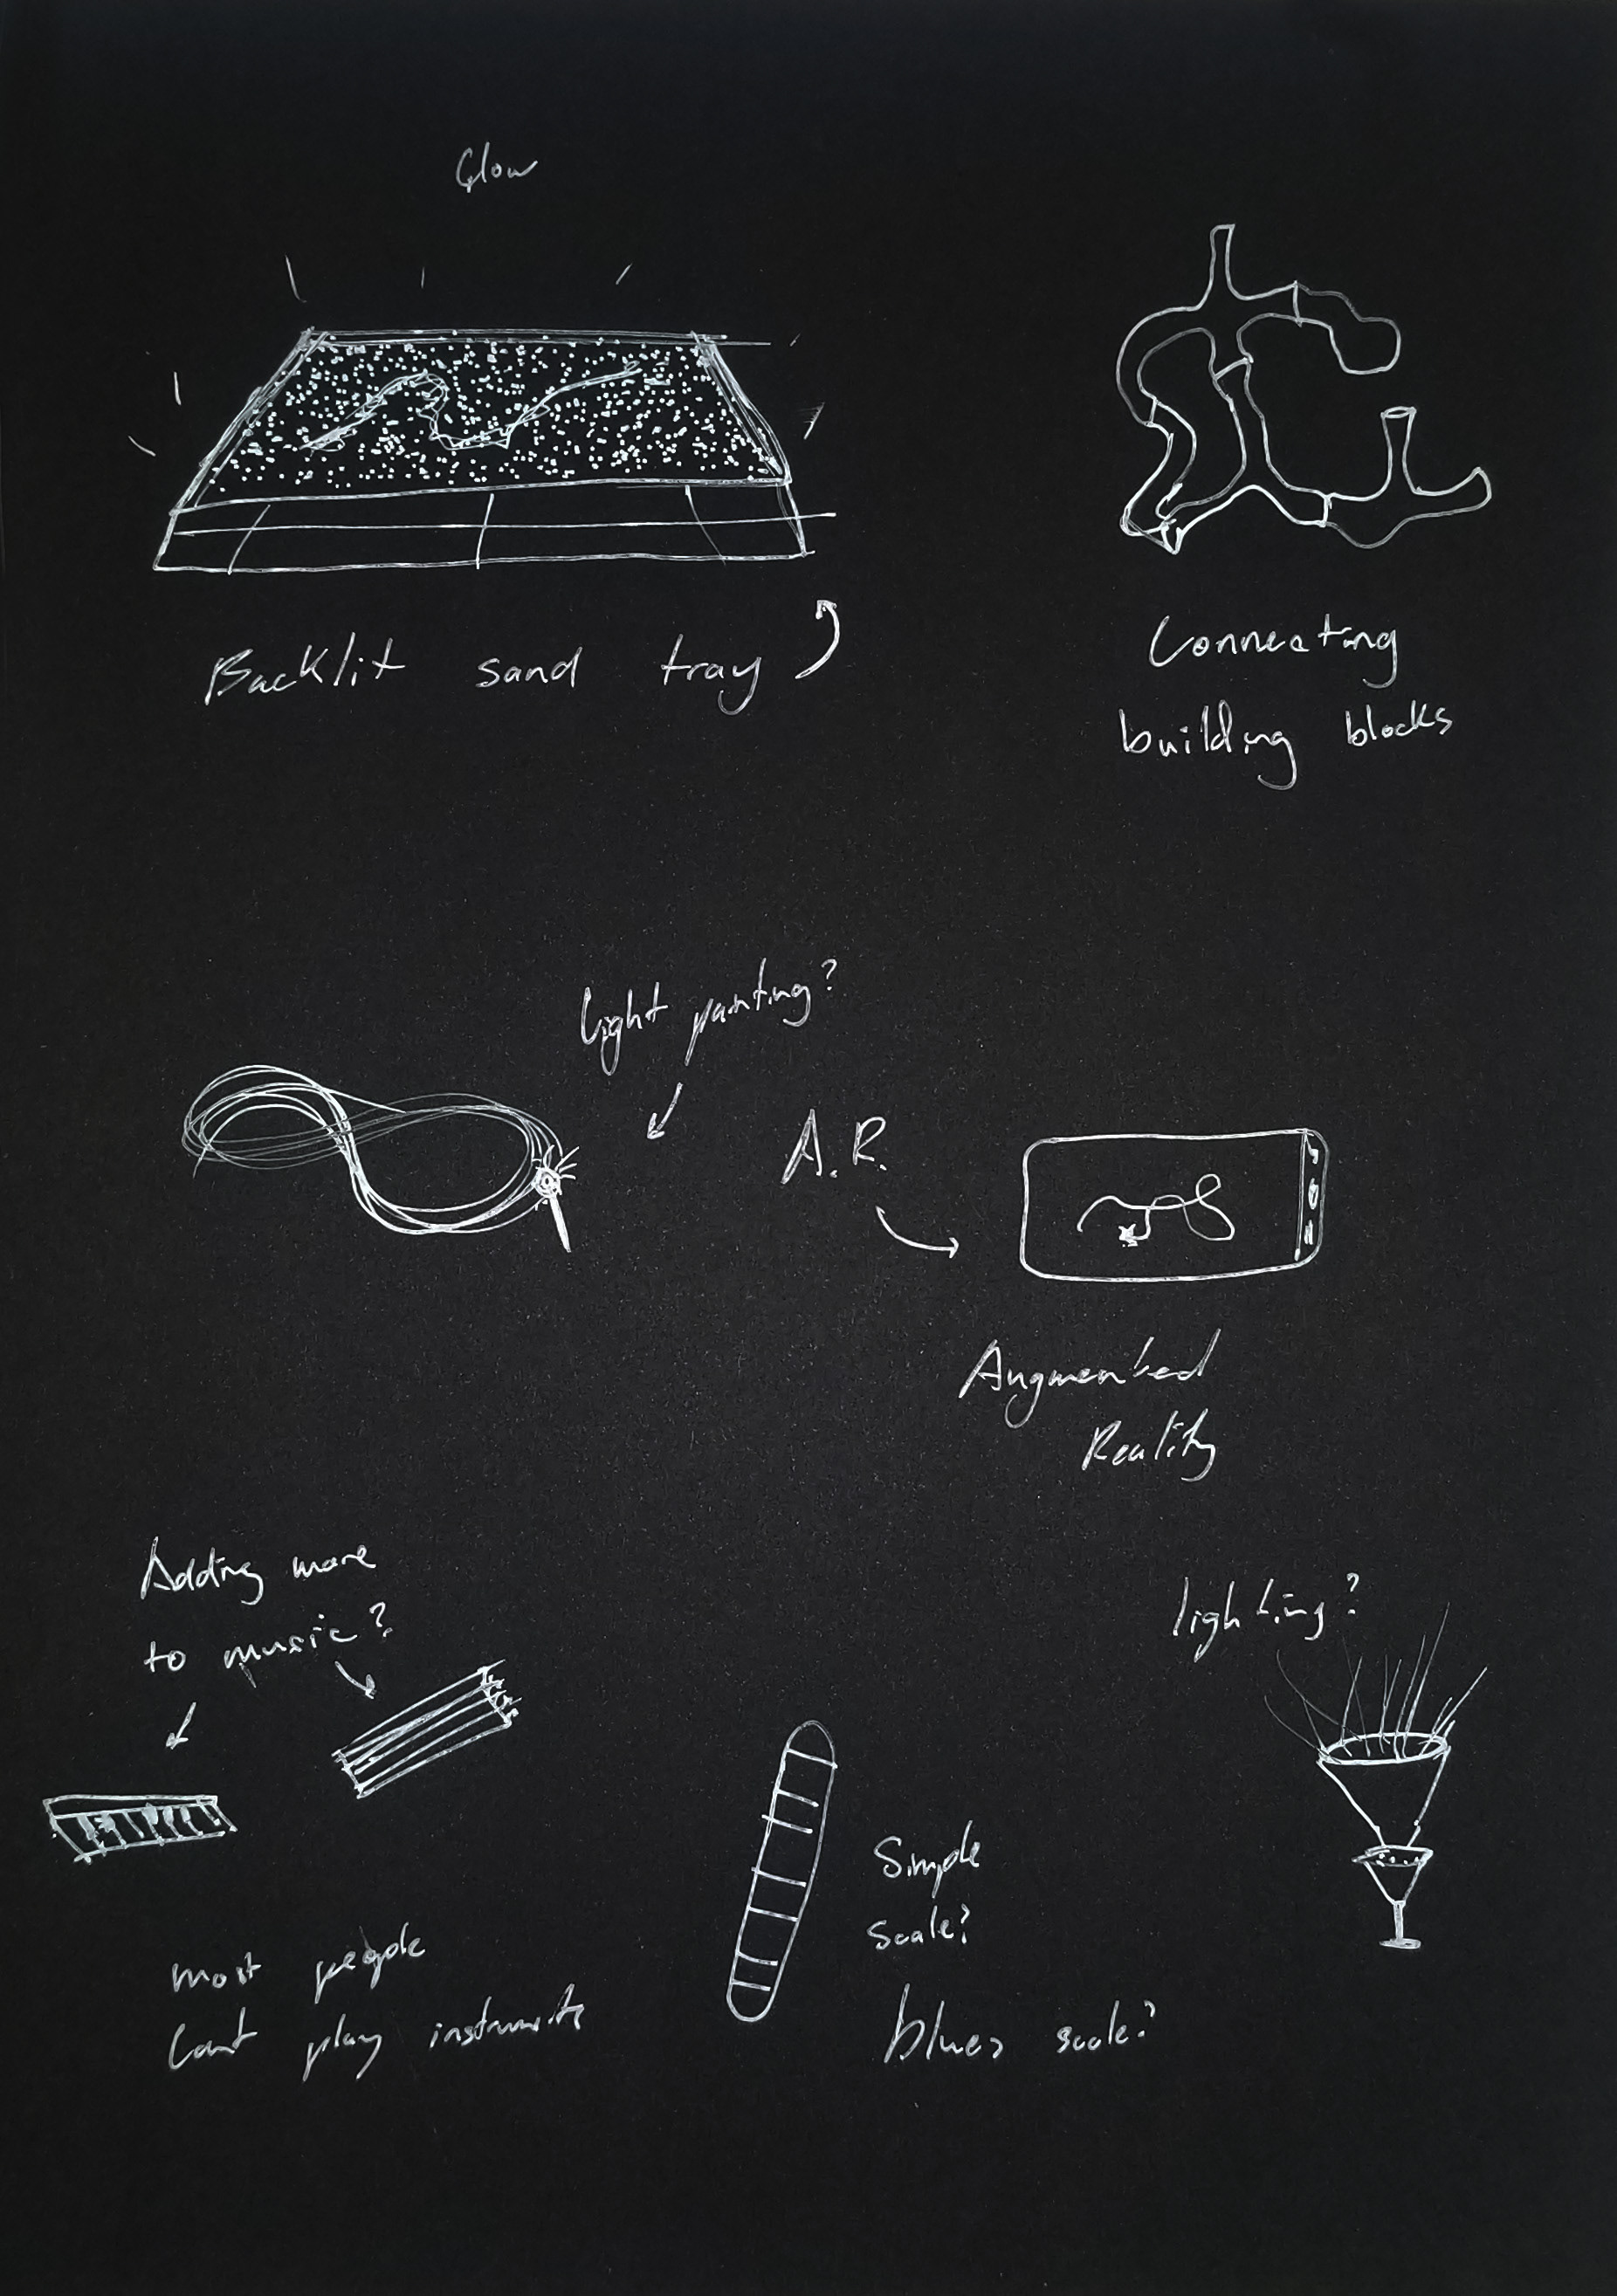 Glow
Backlit sand tray
Connecting
building blocks
light painting?
A.R.
Augmented
Reality
Adding more
to music?
lighting?
Simple
scale?
blues scale?
most people
cant play instruments